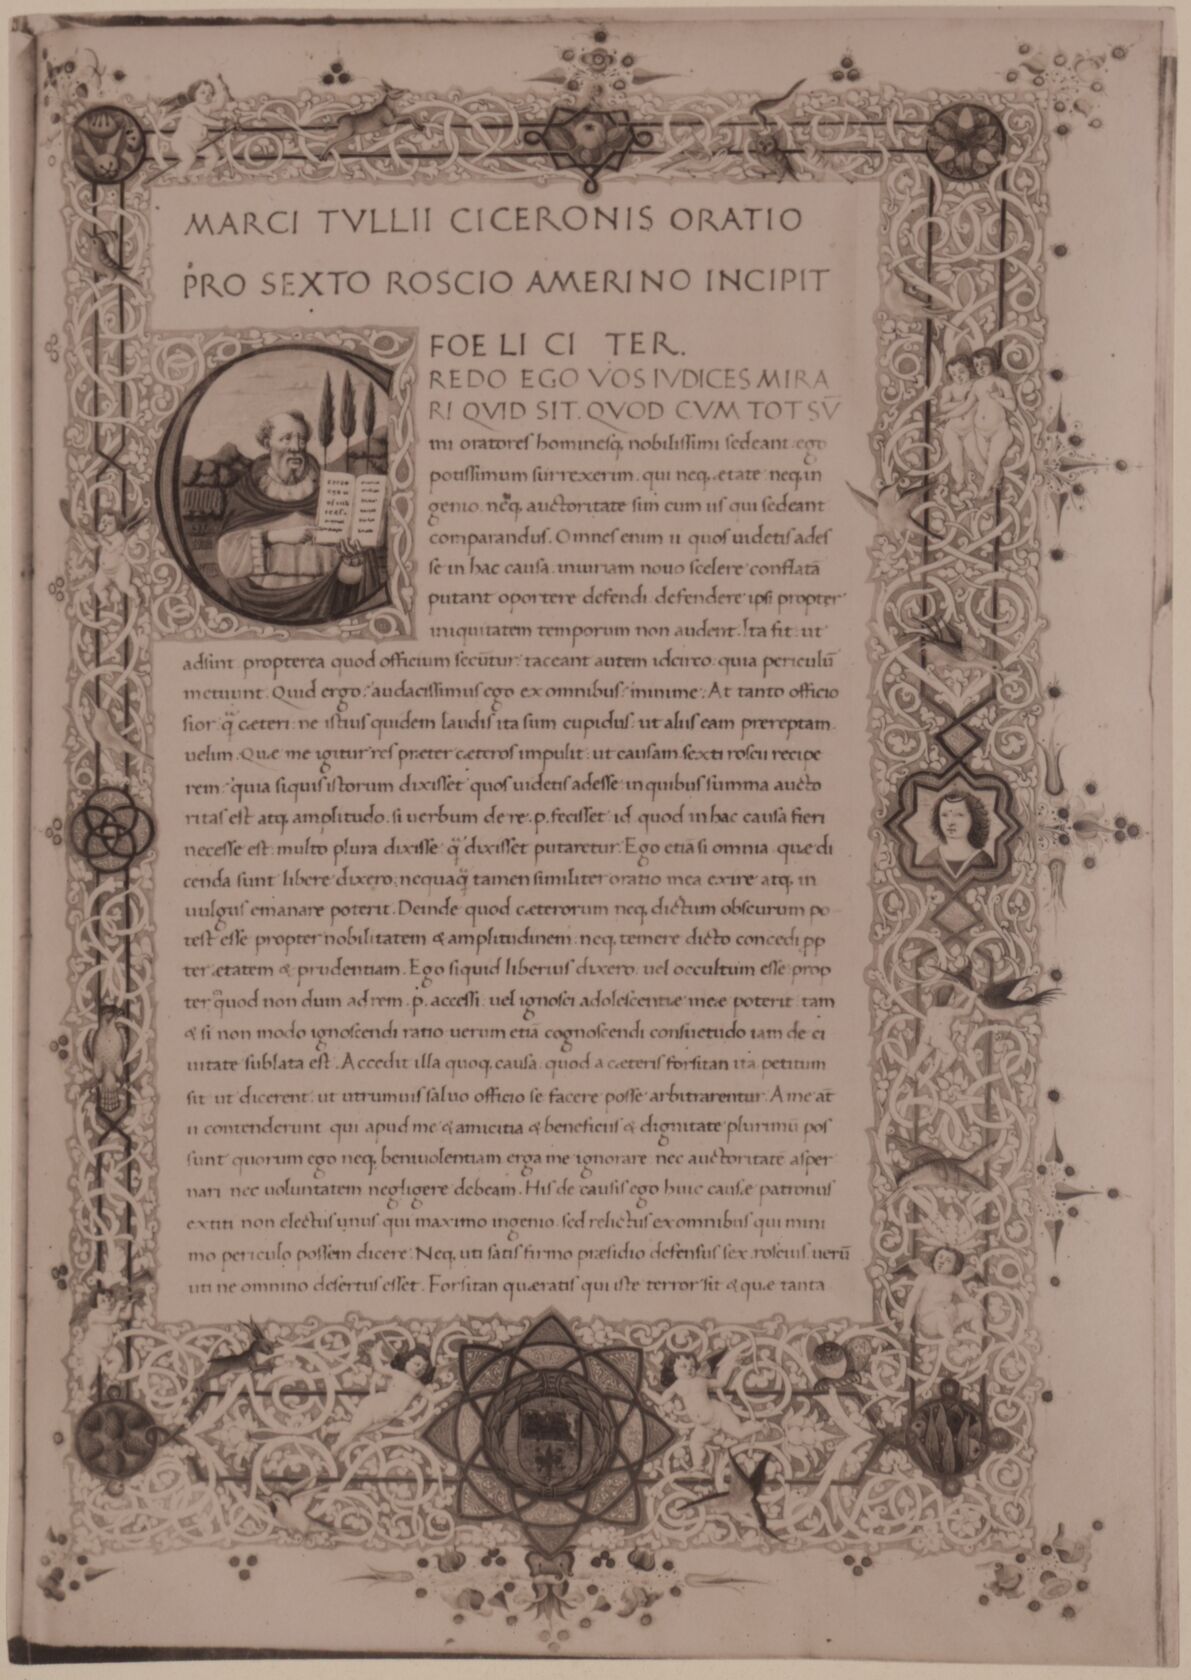 MARCI TVLLII CICERONIS ORATIO
PRO SEXTO ROSCIO AMERINO INCIPIT
FOE LI CI TER.
CREDO EGO VOS IVDICES MIRA
RI QVID SIT. QVOD CVM TOT SV̄
mi oratores hominesq, nobilissimi sedeant. ego
potissimum surrexerim. qui neq, etate neq, in
genio. neq, auctoritate sim cum iis qui sedeant
comparandus. Omnes enim ii quos uidetis ades
se in hac causa. iniuriam nouo scelere conflatā
putant oportere defendi. defendere ipsi propter
iniquitatem temporum non audent. Ita fit. ut
adsint propterea quod officium secūtur. taceant autem idcirco. quia periculū
metuunt. Quid ergo: audacissimus ego ex omnibus: minime. At tanto officio
sior q̄ cæteri. ne istius quidem laudis ita sum cupidus. ut aliis eam prereptam
uelim. Quæ me igitur res præter cæteros impulit. ut causam sexti roscii recipe
rem: quia siquis istorum dixisset quos uidetis adesse. in quibus summa aucto
ritas est atq, amplitudo. si uerbum de re .p. fecisset. id quod in hac causa fieri
necesse est. multo plura dixisse q̄ dixisset putaretur. Ego etiā si omnia que di
cenda sunt libere dixero. nequaq̄ tamen similiter oratio mea exire atq, in
uulgus emanare poterit. Deinde quod cæterorum neq, dictum obscurum po
test esse propter nobilitatem & amplitudinem. neq, temere dicto concedi pp
ter ætatem & prudentiam. Ego siquid liberius dixero. uel occultum esse prop
ter quod non dum ad rem .p. accessi. uel ignosci adolescentiæ meæ poterit. tam
& si non modo ignoscendi ratio uerum etiā cognoscendi consuetudo iam de ci
uitate sublata est. Accedit illa quoq, causa. quod a cæteris forsitan ita petitum
sit ut dicerent. ut utrumuis saluo officio se facere posse arbitrarentur. A me āt
ii contenderunt qui apud me & amicitia & beneficiis & dignitate plurimū pos
sunt quorum ego neq, beniuolentiam erga me ignorare. nec auctoritatē asper
nari nec uoluntatem negligere debeam. His de causis ego huic causæ patronus
extiti non electus unus qui maximo ingenio. sed relictus ex omnibus qui mini
mo periculo possem dicere. Neq, uti satis firmo præsidio defensus sex. roscius. uerū
uti ne omnino desertus esset. Forsitan quæratis qui iste terror sit & quæ tanta